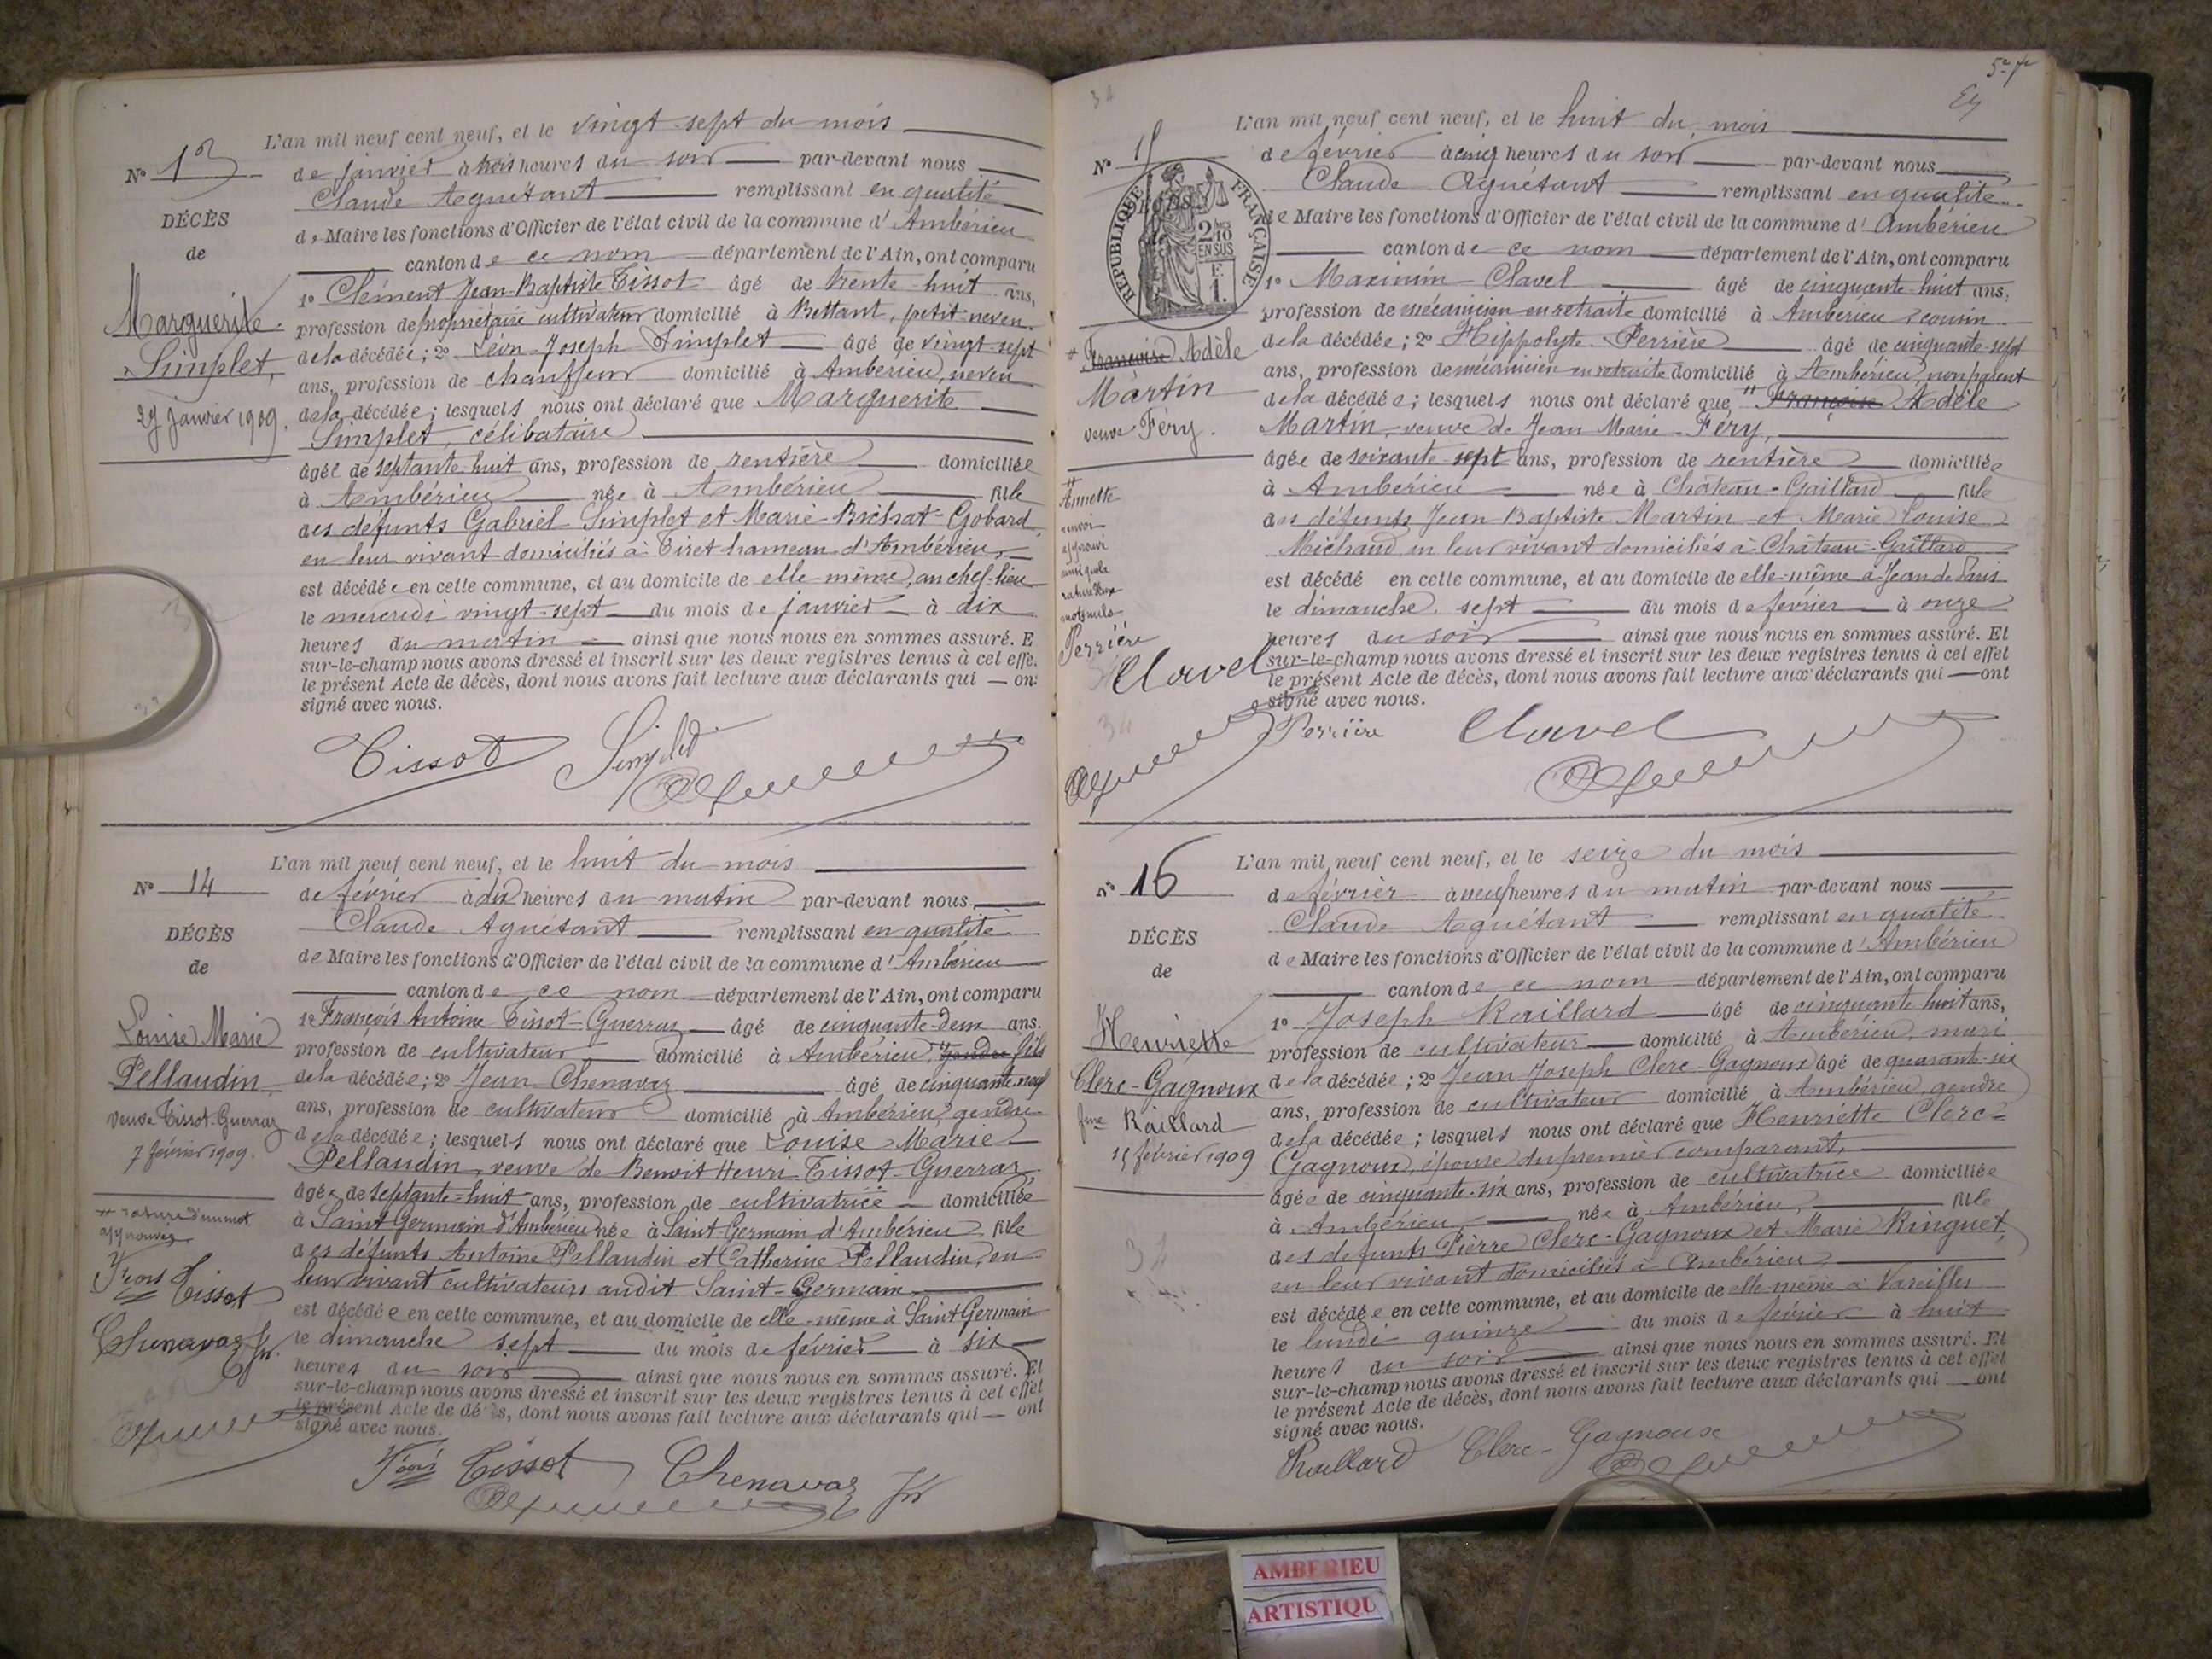 L'an mil neuf cent neuf, et le vingt-sept du mois
N° 13
de janvier à trois heures du soir par-devant nous
Claude Aguétant remplissant en qualité
DÉCÈS
de Maire les fonctions d'Officier de l'état civil de la commune d'Ambérieu
de
canton de ce nom département de l'Ain, ont comparu
1° Clément Jean-Baptiste Tissot âgé de trente-huit ans,
Marguerite
profession de propriétaire cultivateur domicilié à Bettant, petit-neveu
Simplet,
de la décédée; 2° Léon-Joseph Simplet âgé de vingt-sept
ans, profession de chauffeur domicilié à Ambérieu, neveu
27 janvier 1909.
de la décédée; lesquels nous ont déclaré que Marguerite
Simplet, célibataire
âgée de septante-huit ans, profession de rentière domiciliée
à Ambérieu née à Ambérieu fille
des défunts Gabriel Simplet et Marie Brichat-Gobard,
en leur vivant domiciliés à Tiret hameau d'Ambérieu,
est décédée en cette commune, et au domicile de elle-même, au chef-lieu
le mercredi vingt-sept du mois de janvier à dix
heures du matin ainsi que nous nous en sommes assuré. E
sur-le-champ nous avons dressé et inscrit sur les deux registres tenus à cet effe.
le présent Acte de décès, dont nous avons fait lecture aux déclarants qui ont
signé avec nous.
Tissot Simplet
L'an mil neuf cent neuf, et le huit du mois
N° 14
de février à dix heures du matin par-devant nous
Claude Aguétant remplissant en qualité
DÉCÈS
de Maire les fonctions d'Officier de l'état civil de la commune d'Ambérieu
de
canton de ce nom département de l'Ain, ont comparu
1° François Antoine Tissot-Guerraz âgé de cinquante-deux ans.
Louise Marie
profession de cultivateur domicilié à Ambérieu, gendre fils
Pellaudin,
de la décédée; 2° Jean Chenavaz âgé de cinquante-neuf
veuve Tissot-Guerraz
ans, profession de cultivateur domicilié à Ambérieu, gendre
7 février 1909.
de la décédée; lesquels nous ont déclaré que Louise Marie
Pellaudin, veuve de Benoit Henri Tissot-Guerraz,
âgée de septante-huit ans, profession de cultivatrice domiciliée
rature d'un mot
approuvée
à Saint Germain d'Ambérieu née à Saint Germain d'Ambérieu, fille
des défunts Antoine Pellaudin et Catherine Pellaudin, en
Fçois Tissot
leur vivant cultivateurs audit Saint-Germain
est décédée en cette commune, et au domicile de elle-même à Saint Germain
Chenavaz
le dimanche sept du mois de février à six
heures du soir ainsi que nous nous en sommes assuré. Et
sur-le-champ nous avons dressé et inscrit sur les deux registres tenus à cet effet
le présent Acte de décès, dont nous avons fait lecture aux déclarants qui ont
signé avec nous.
Fçois Tissot Chenavaz
34
L'an mil neuf cent neuf, et le huit du mois
N° 15
de février à cinq heures du soir par-devant nous
Claude Aguétant remplissant en qualité
RÉPUBLIQUE FRANÇAISE
2/10 EN SUS
F. 1.
de Maire les fonctions d'Officier de l'état civil de la commune d'Ambérieu
canton de ce nom département de l'Ain, ont comparu
1° Maximin Clavel âgé de cinquante-huit ans,
profession de mécanicien en retraite domicilié à Ambérieu, cousin
Françoise Adèle
de la décédée; 2° Hippolyte Perrière âgé de cinquante-sept
Martin
ans, profession de mécanicien en retraite domicilié à Ambérieu, non parent
veuve Féry.
de la décédée; lesquels nous ont déclaré que Françoise Adèle
Martin, veuve de Jean Marie Féry,
âgée de soixante-sept ans, profession de rentière domiciliée
Annette
renvoi
approuvé
ainsi que la
rature de deux
mots nuls
à Ambérieu née à Château-Gaillard fille
des défunts Jean Baptiste Martin et Marie Louise
Michaud en leur vivant domiciliés à Château-Gaillard
est décédé en cette commune, et au domicile de elle-même à Jean de Paris
le dimanche sept du mois de février à onze
Perrière
heures du soir ainsi que nous nous en sommes assuré. Et
Clavel
sur-le-champ nous avons dressé et inscrit sur les deux registres tenus à cet effet
le présent Acte de décès, dont nous avons fait lecture aux déclarants qui ont
signé avec nous.
34
Perrière Clavel
L'an mil neuf cent neuf, et le seize du mois
N° 16
de février à neuf heures du matin par-devant nous
Claude Aguétant remplissant en qualité
DÉCÈS
de Maire les fonctions d'Officier de l'état civil de la commune d'Ambérieu
de
canton de ce nom département de l'Ain, ont comparu
1° Joseph Raillard âgé de cinquante-huit ans,
Henriette
profession de cultivateur domicilié à Ambérieu, mari
Clerc-Gagnoux
de la décédée; 2° Jean Joseph Clerc-Gagnoux âgé de quarante-six
fme Raillard
ans, profession de cultivateur domicilié à Ambérieu, gendre
de la décédée; lesquels nous ont déclaré que Henriette Clerc-
15 février 1909
Gagnoux, épouse du premier comparant,
âgée de cinquante-six ans, profession de cultivatrice domiciliée
à Ambérieu, née à Ambérieu, fille
des défunts Pierre Clerc-Gagnoux et Marie Ringuet,
34
en leur vivant domiciliés à Ambérieu
est décédée en cette commune, et au domicile de elle-même à Vareilles
le lundi quinze du mois de février à huit
heures du soir ainsi que nous nous en sommes assuré. Et
sur-le-champ nous avons dressé et inscrit sur les deux registres tenus à cet effet
le présent Acte de décès, dont nous avons fait lecture aux déclarants qui ont
signé avec nous.
Raillard Clerc-Gagnoux
AMBERIEU
ARTISTIQU